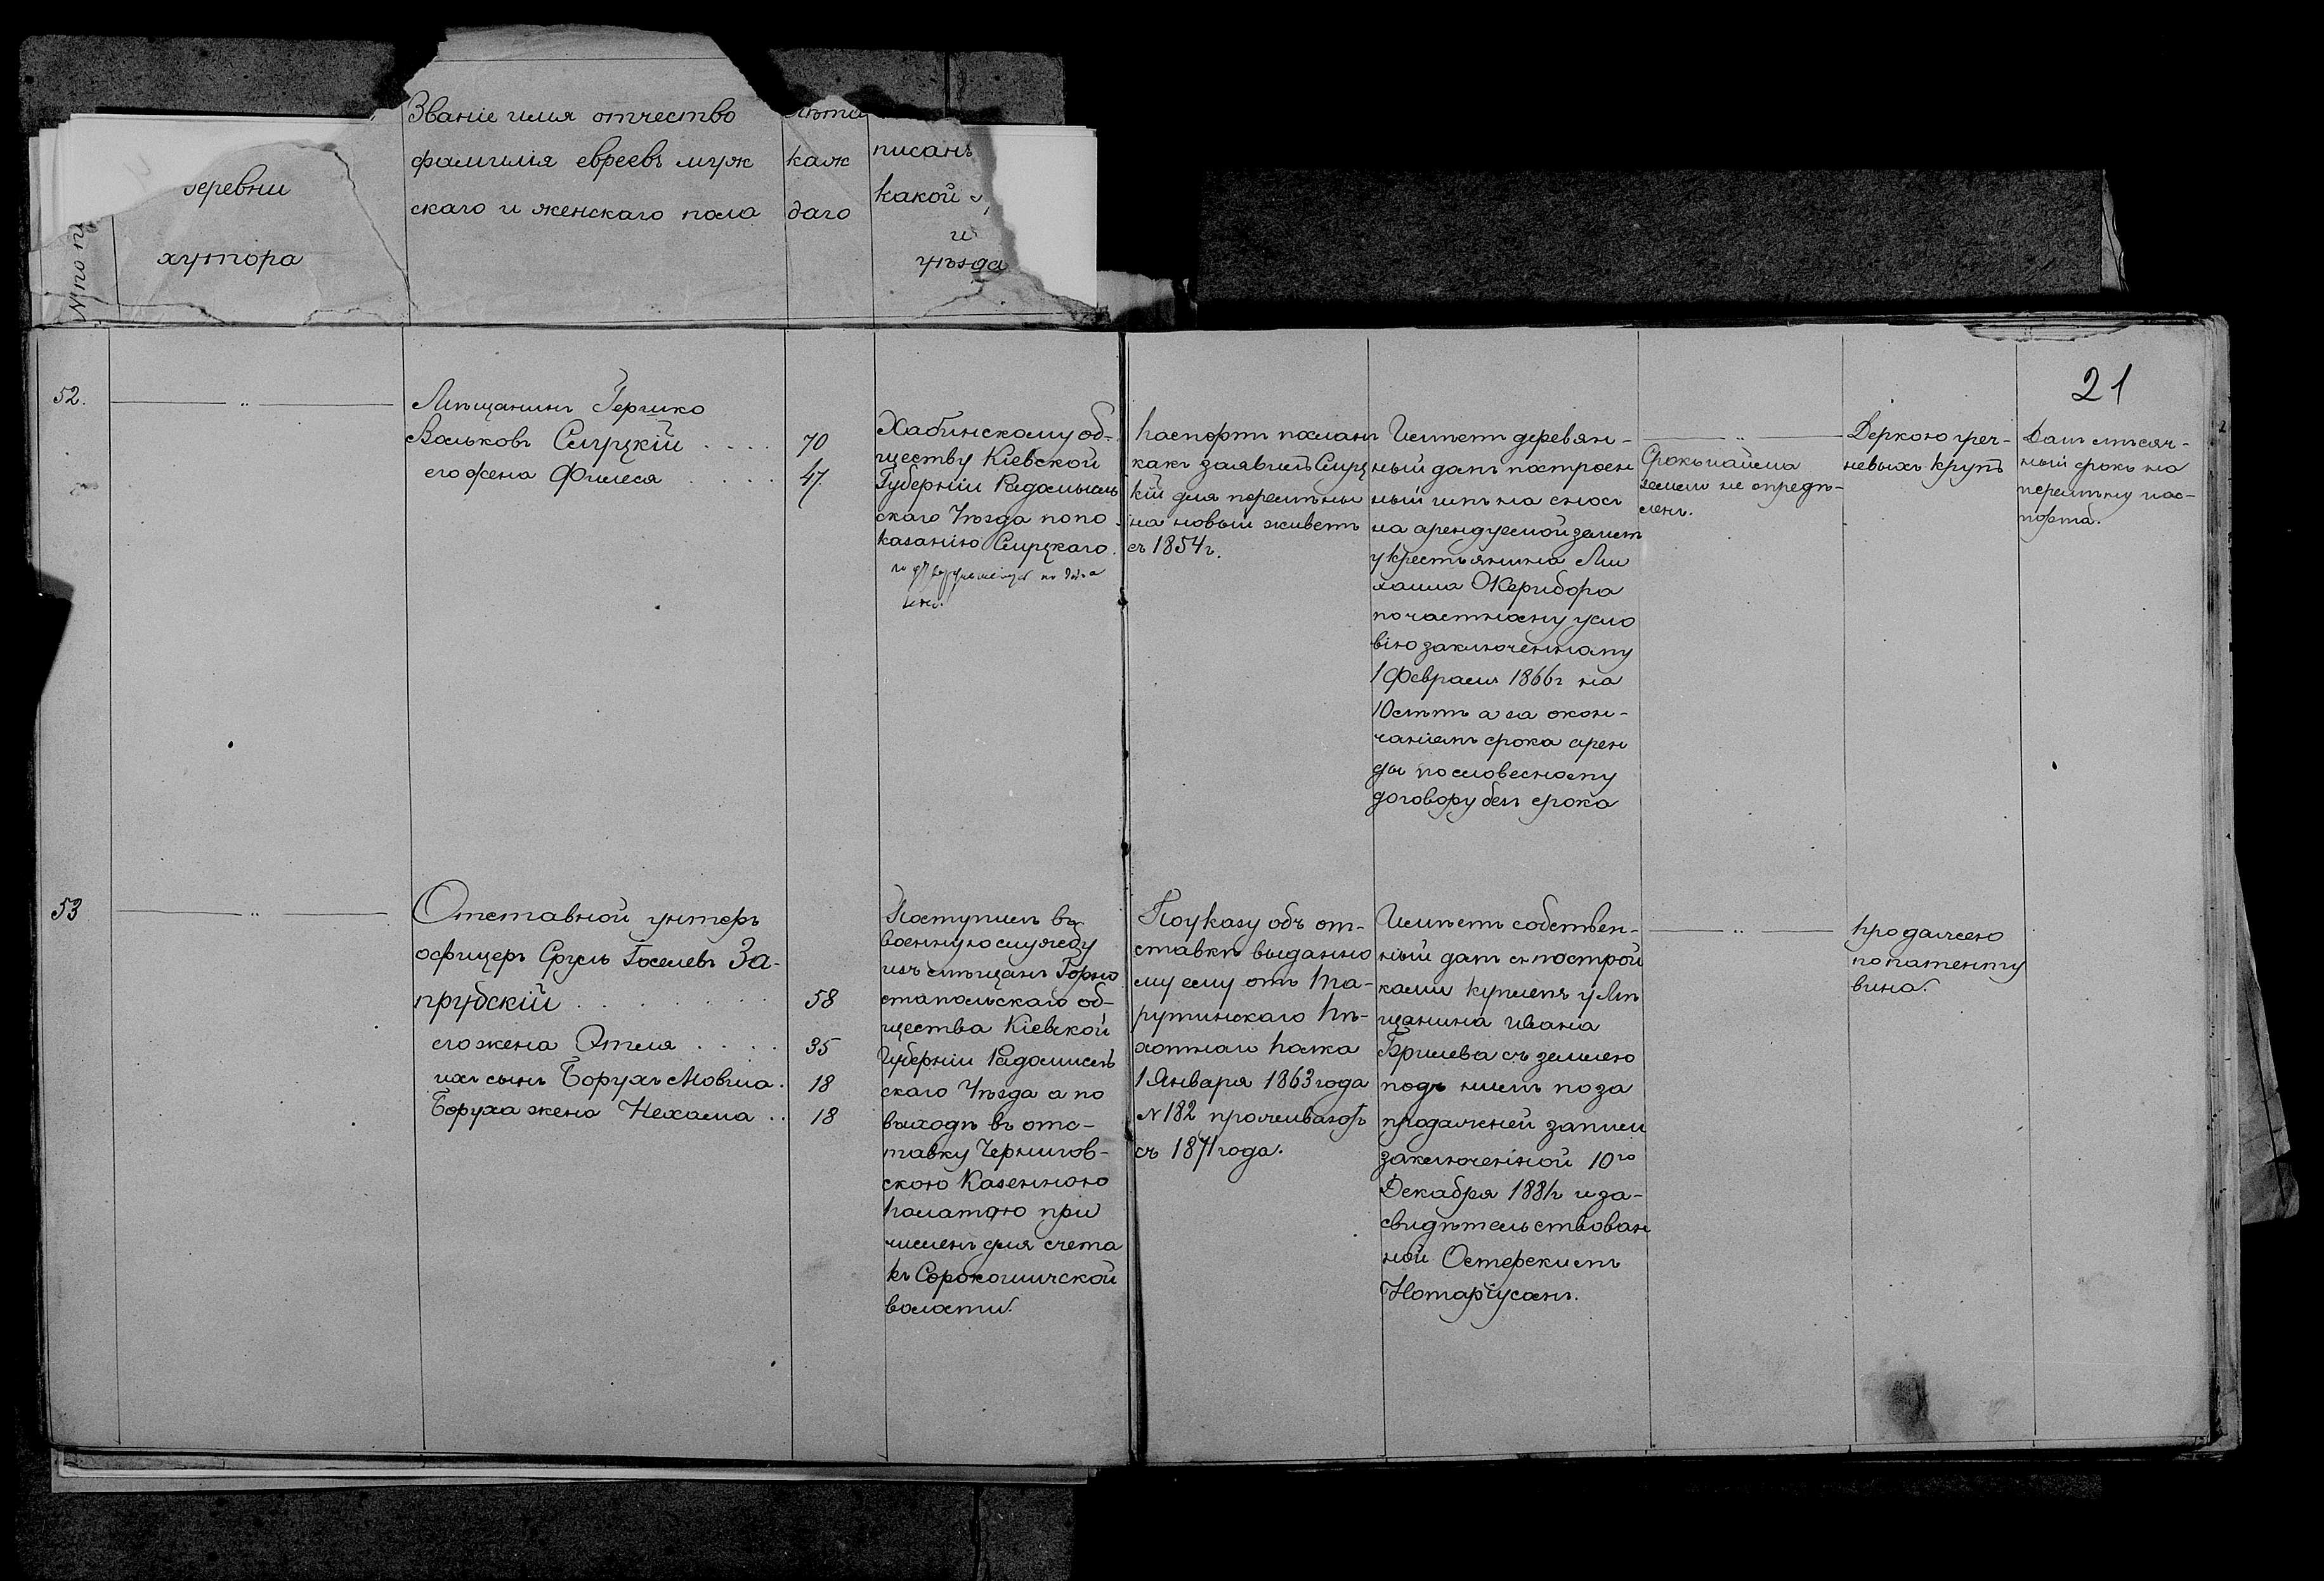 Званіе имя отчество
фамилія евреевъ муж
скаго и женскаго пола
лѣта
каж
даго
писанъ
какой
и
уѣзда
деревни
хутора
№ по п
21
52.
Мѣщанинъ Гершко
Вольковъ Слуцкій . . . . 70
его жена Филеся . . . . 47.
Хабинскому об-
ществу Кіевской
Губерніи Радомысль
скаго Уѣзда по по
казанію Слуцкаго.
Паспортъ посланъ
какъ заявилъ Слуц
кій для перемѣны
на новый живетъ
съ 1854 г.
Имѣетъ деревян-
ный домъ построен
ный имъ на сносъ
на арендуемой землѣ
у крестьянина Ми
хаила Жерибора
по частному усло
вію заключенному
1 Февраля 1866 г на
10 лѣтъ а за окон-
чаніемъ срока арен
ды по словесному
договору безъ срока
Срокъ найма
земли не опредѣ-
ленъ.
Деркою греч-
невыхъ крупъ
Данъ мѣсяч-
ный срокъ на
перемѣну пас-
порта.
53
Отставной унтеръ
офицеръ Сруль Іоселевъ За-
прубскій . . . . . . . 58
его жена Этля . . . . 35
ихъ сынъ Борухъ Мовша . 18
Боруха жена Нехама . . 18
Поступилъ въ
военную службу
изъ мѣщанъ Горно
стапольскаго об-
щества Кіевской
Губерніи Радомисль
скаго Уѣзда а по
выходѣ въ отс-
тавку Чернигов-
скою Казенною
Палатою при
численъ для счета
къ Сорокошичской
волости.
По указу объ от-
ставкѣ выданно
му ему отъ Та-
рутинскаго Пѣ-
хотнаго Полка
1 Января 1863 года
№ 182 проживаютъ
съ 1871 года.
Имѣетъ собствен-
ный домъ съ построй
ками купленъ у Мѣ
щанина Ивана
Брилева съ землею
подъ нимъ по за
продажней записи
заключенной 10го
Декабря 1881 г и за-
свидѣтельствован
ной Остерскимъ
Нотаріусомъ.
продажею
по патенту
вина.